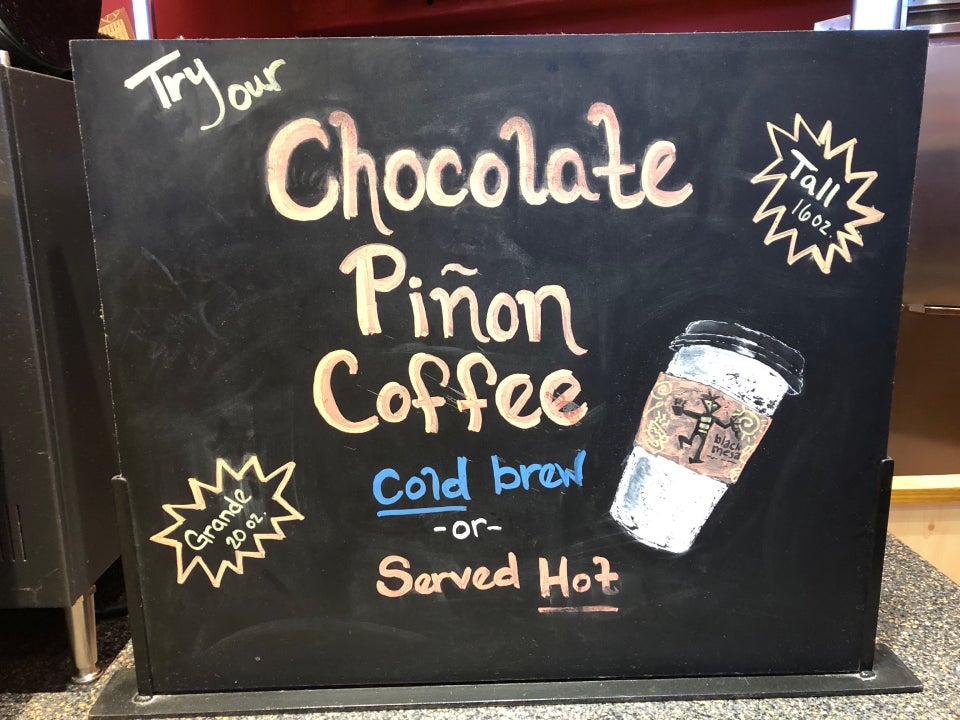 Try our
Chocolate
Piñon
Coffee
Cold brew
-or-
Served Hot
Tall
16 oz.
Grande
20 oz.
black
mesa